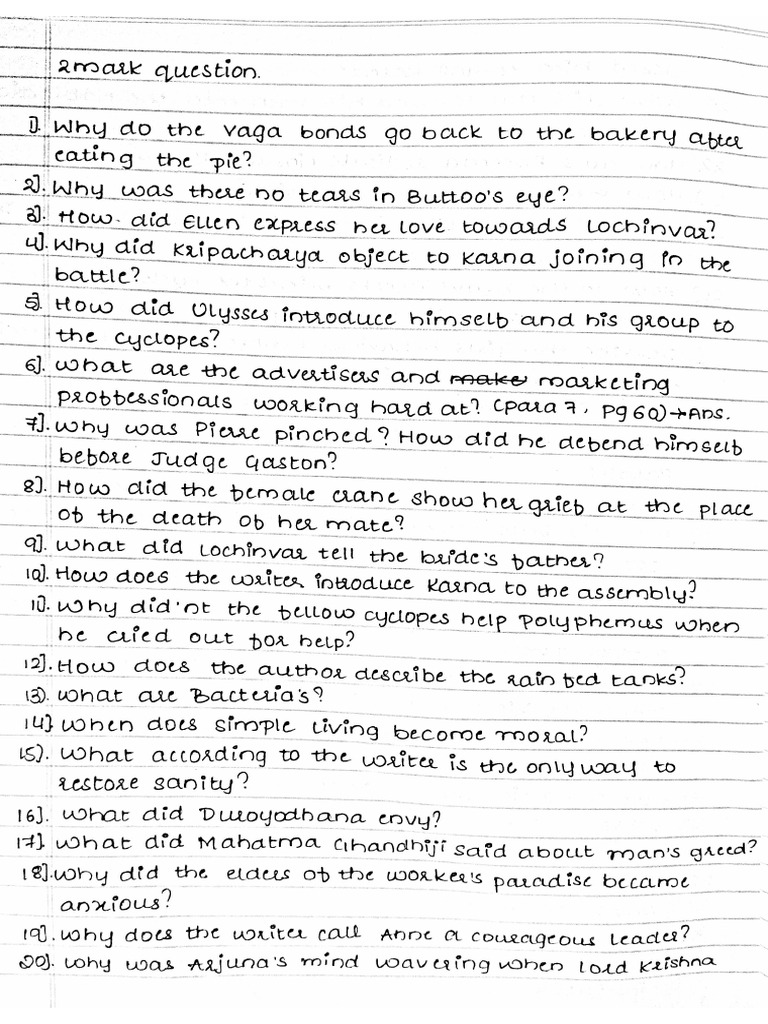 2mark question.
1]. Why do the vaga bonds go back to the bakery after
eating the pie?
2]. Why was there no tears in Buttoo's eye?
3]. How did Ellen express her love towards Lochinvar?
4]. Why did Kripacharya object to Karna joining in the
battle?
5]. How did Ulysses introduce himself and his group to
the cyclopes?
6]. What are the advertisers and make marketing
proffessionals working hard at? (para 7, Pg 60) → Ans.
7]. Why was Pierre pinched? How did he defend himself
before Judge Gaston?
8]. How did the female crane show her grief at the place
of the death of her mate?
9]. What did Lochinvar tell the bride's father?
10]. How does the writer introduce Karna to the assembly?
11]. Why did'nt the fellow cyclopes help Polyphemus when
he cried out for help?
12]. How does the author describe the rain fed tanks?
13). What are Bacteria's?
14] When does simple living become moral?
15). What according to the writer is the only way to
restore sanity?
16]. What did Duroyodhana envy?
17] What did Mahatma Ghandhiji said about man's greed?
18]. Why did the elders of the worker's paradise became
anxious?
19]. Why does the writer call Anne a courageous leader?
20]. Why was Arjuna's mind wavering when lord Krishna